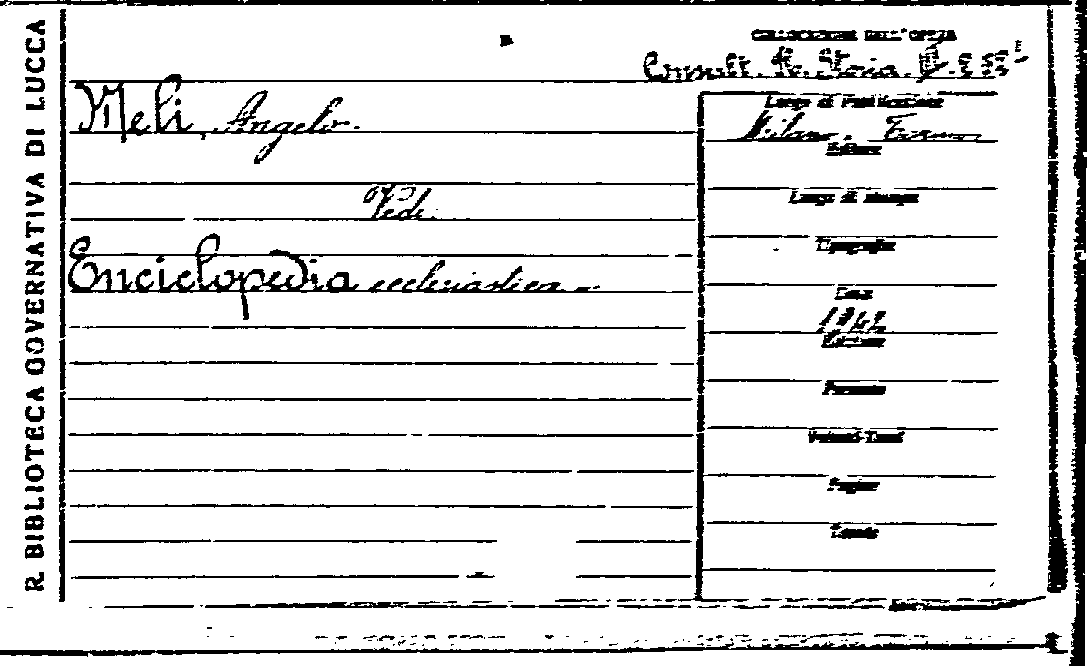 R. BIBLIOTECA GOVERNATIVA DI LUCCA
COLLOCAZIONE DELL'OPERA
Consult. Storia.
Meli, Angelo.
Vedi.
Enciclopedia ecclesiastica
Luogo di Pubblicazione
Milano, Torino
Editore
Luogo di stampa
Tipografia
Data
1942
Edizione
Formato
Volumi-Tomi
Pagine